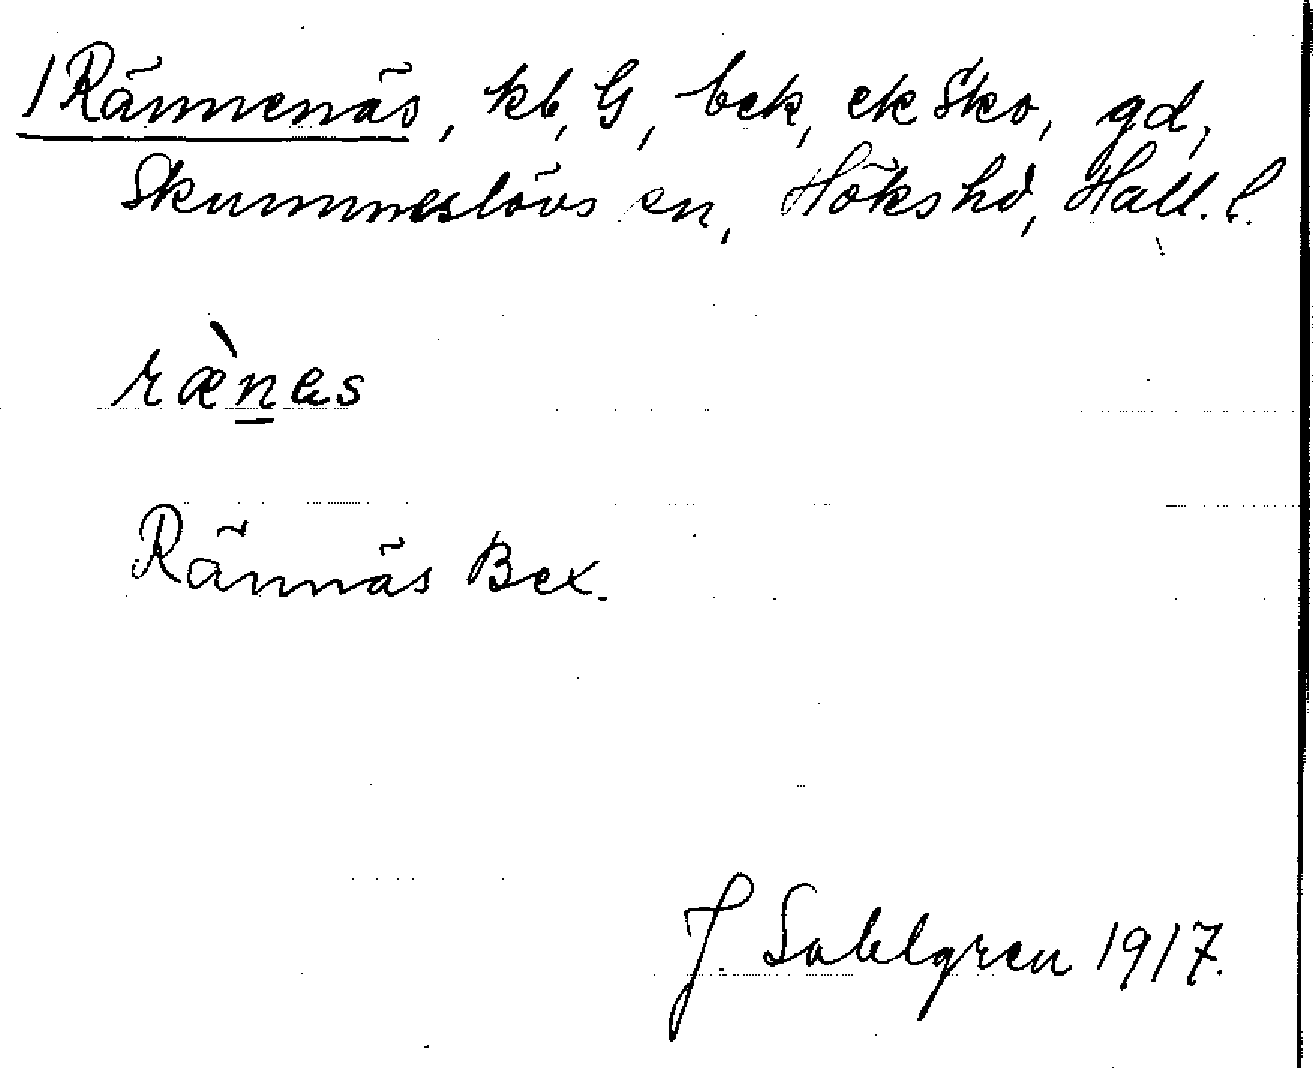 1 Rännenäs, kb, G, bek, ek Sko, gd,
Skummeslövs sn, Höks hd, Hall. l.
ræ̀nes
Rännäs Bex.
J. Sahlgren 1917.